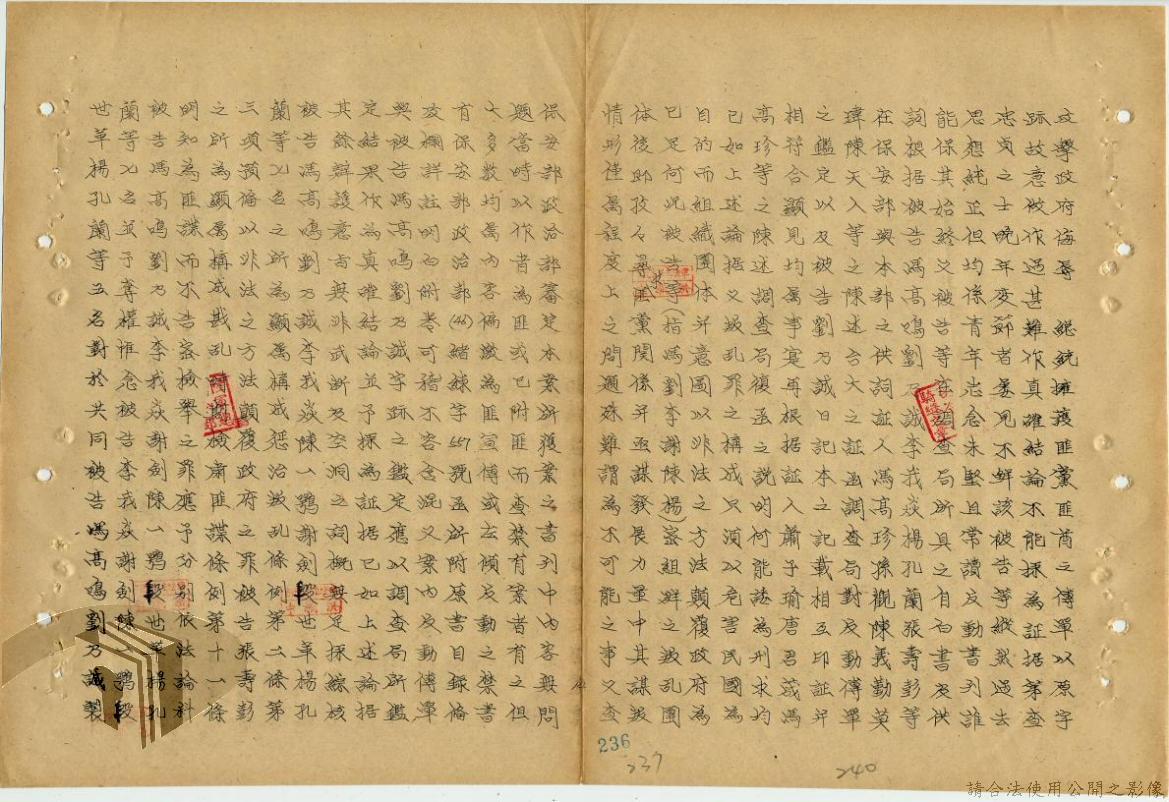 政學政府侮辱　總統擁護匪黨匪酋之傳單以原字
跡故意做作過甚難作真確結論不能採為証據第查
忠貞之士晚年變節者屢見不鮮該被告等縱然過去
思想純正但均係青年志念未堅且常讀反動書刊誰
能保其始終又被告等在調查局所具之自白書及供
詞根据被告馮高鳴劉乃誠李我焱楊孔蘭張壽彭等
在保安部與本部之供詞証人馮高珍孫觀陳義勤英
瑋陳天入等之陳述台大之証函調查局對反動傳單
之鑑定以及被告劉乃誠日記本之記載相互印証并
相符合顯見均属事寔再根据証人蕭子瑜唐君葳馮
高珍等之陳述調查局復函之說明何能諉為刑求均
已如上述論据又叛乱罪之構成只須以危害民國為
目的而組織團体并意圖以非法之方法顛覆政府為
已足何况被告等(指馮劉李謝陳楊)密組鮮之叛乱團
体後即孜々尋匪黨関係并亟謀發展力量中其謀叛
情形僅属程度上之問題殊難謂為不可能之事又查
236
237
240
保安部政治部審定本案所獲案之書刊中內容無問
題當時以作者為匪或已附匪而查禁有案者有之但
大多數均属內容偏激為匪宣傳或左傾反動之禁書
有保安部政治部(44)緒練字557號函所附原書目錄俻
攷欄詳註明白附卷可稽不容含混又案內反動傳單
與被告馮高鳴劉乃誠字跡之鑑定應以調查局所鑑
定結果作為真確結論並予採為証据已如上述論据
其餘辯護意旨無非武断及空洞之詞概無足採綜核
被告馮高鳴劉乃誠李我焱陳一鶚謝劍段世革楊孔
蘭等七名之所為顯属構成惩治叛乱條例第二條第
三項預俻以非法之方法顛覆政府之罪被告張壽彭
之所為顯属構成戡乱時期檢肅匪諜條例第十一條
明知為匪諜而不告密檢舉之罪應予分別依法論科
被告馮高鳴劉乃誠李我焱謝劍陳一鶚段世革楊孔
蘭等七名並予奪權惟念被告李我焱謝劍陳一鶚段
世革楊孔蘭等五名對於共同被告馮高鳴劉乃誠製
請合法使用公開之影像